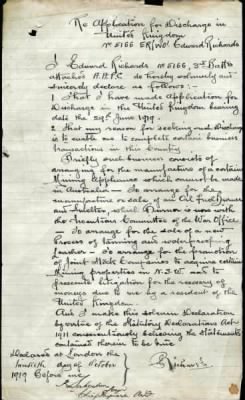 Re Application for Discharge in
United Kingdom
No 5166 ER/WO Edward Richards
I Edward Richards No 5166, 3rd Battn
attached A.A.P.C. do hereby solemnly and
sincerely declare as follows:-
1. That I have made application for
Discharge in the United Kingdom bearing
date the 29th June 1919.
2. That my reason for seeking such Discharge
is to enable me to complete certain business
transactions in this Country
Briefly such business consists of
arranging for the manufacture of certain
Mining Appliances which cannot be made
in Australia - To arrange for the
manufacture or sale of an Oil Fuel Burner
and Smelter, which Burner is now with
the Inventions Committee of the War Office
- To arrange for the sale of a new
Process of tanning and waterproof
Leather - To arrange for the promotion
of Joint Stock Companies to acquire certain
mining properties in N.S.W. and to
prosecute litigation for the recovery of
moneys due to me by a resident of the
United Kingdom.
And I make this solemn Declaration
by virtue of the Statutory Declarations Act
1911 conscientiously believing the statements
contained therein to be true
Declared at London the
day of October
1919 Before me
E Richards